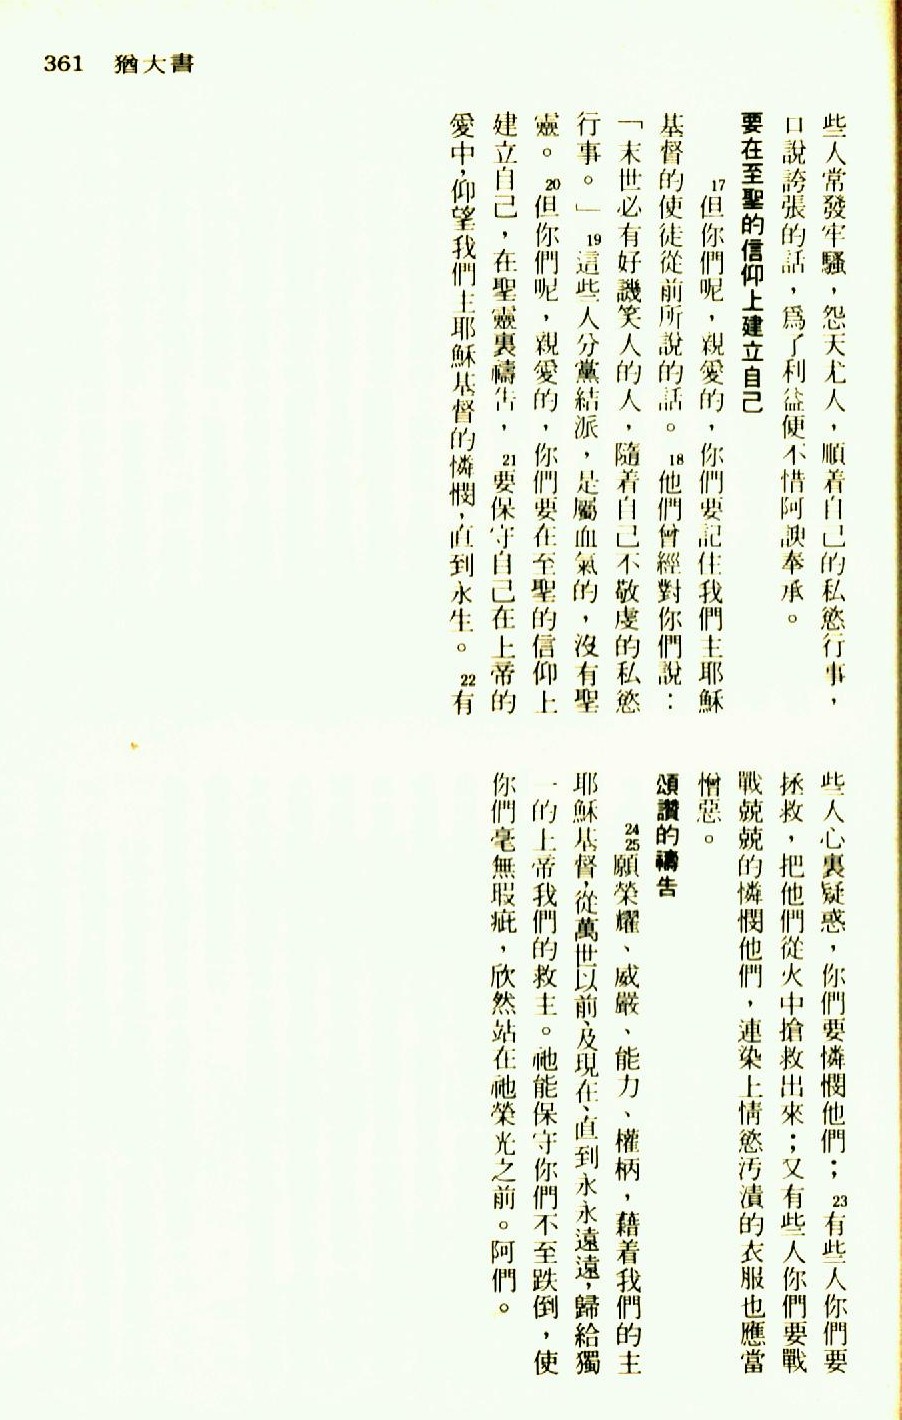 361 猶大書
些人常發牢騷，怨天尤人，順着自己的私慾行事，
口說誇張的話，爲了利益便不惜阿諛奉承。
要在至聖的信仰上建立自己
17但你們呢，親愛的，你們要記住我們主耶穌
基督的使徒從前所說的話。18他們曾經對你們說：
「末世必有好譏笑人的人，隨着自己不敬虔的私慾
行事。」19這些人分黨結派，是屬血氣的，沒有聖
靈。20但你們呢，親愛的，你們要在至聖的信仰上
建立自己，在聖靈裏禱告，21要保守自己在上帝的
愛中，仰望我們主耶穌基督的憐憫，直到永生。22有
些人心裏疑惑，你們要憐憫他們；23有些人你們要
拯救，把他們從火中搶救出來；又有些人你們要戰
戰兢兢的憐憫他們，連染上情慾污漬的衣服也應當
憎惡。
頌讚的禱告
24 25願榮耀、威嚴、能力、權柄，藉着我們的主
耶穌基督，從萬世以前、及現在、直到永永遠遠，歸給獨
一的上帝我們的救主。祂能保守你們不至跌倒，使
你們毫無瑕疵，欣然站在祂榮光之前。阿們。